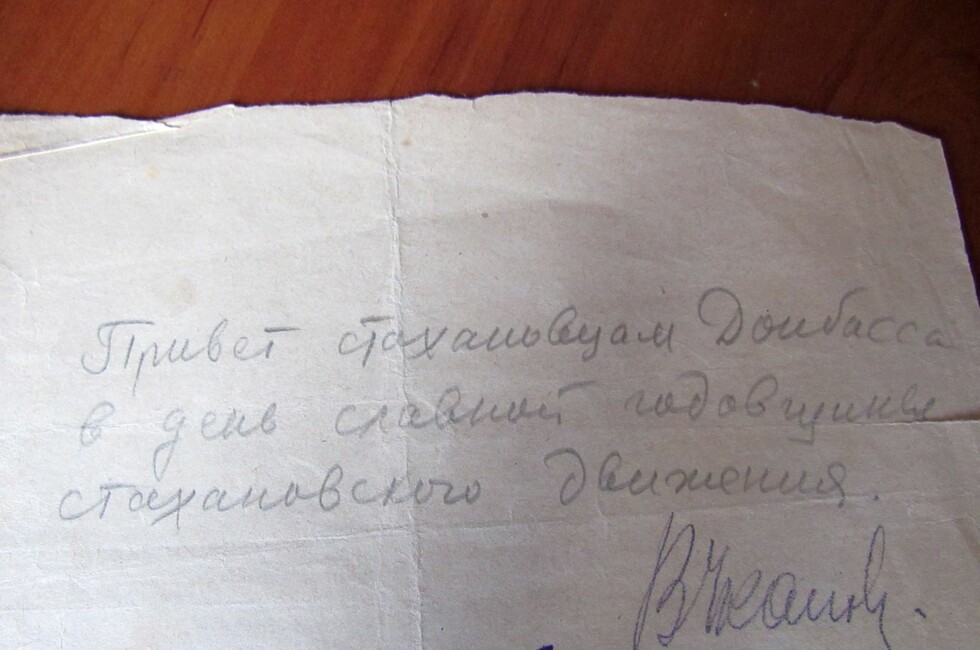 Привет стахановцам Донбасса
в день славной годовщины
стахановского движения.
В Чкалов.